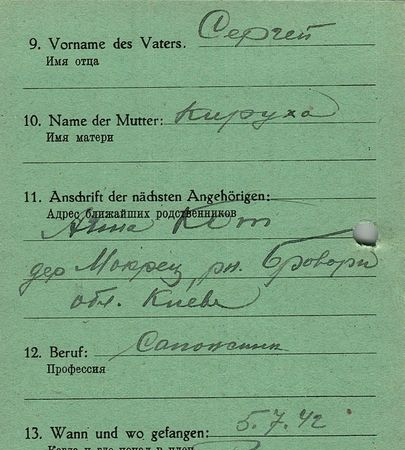 9. Vorname des Vaters. Сергей
Имя отца
10. Name der Mutter: Кируха
Имя матери
11. Anschrift der nächsten Angehörigen:
Адрес ближайших родственников
Анна Кот
дер Мокрец, рн. Бровори
обл. Киева
12. Beruf: Сапожник
Профессия
13. Wann und wo gefangen: 5.7.42
Когда и где попал в плен